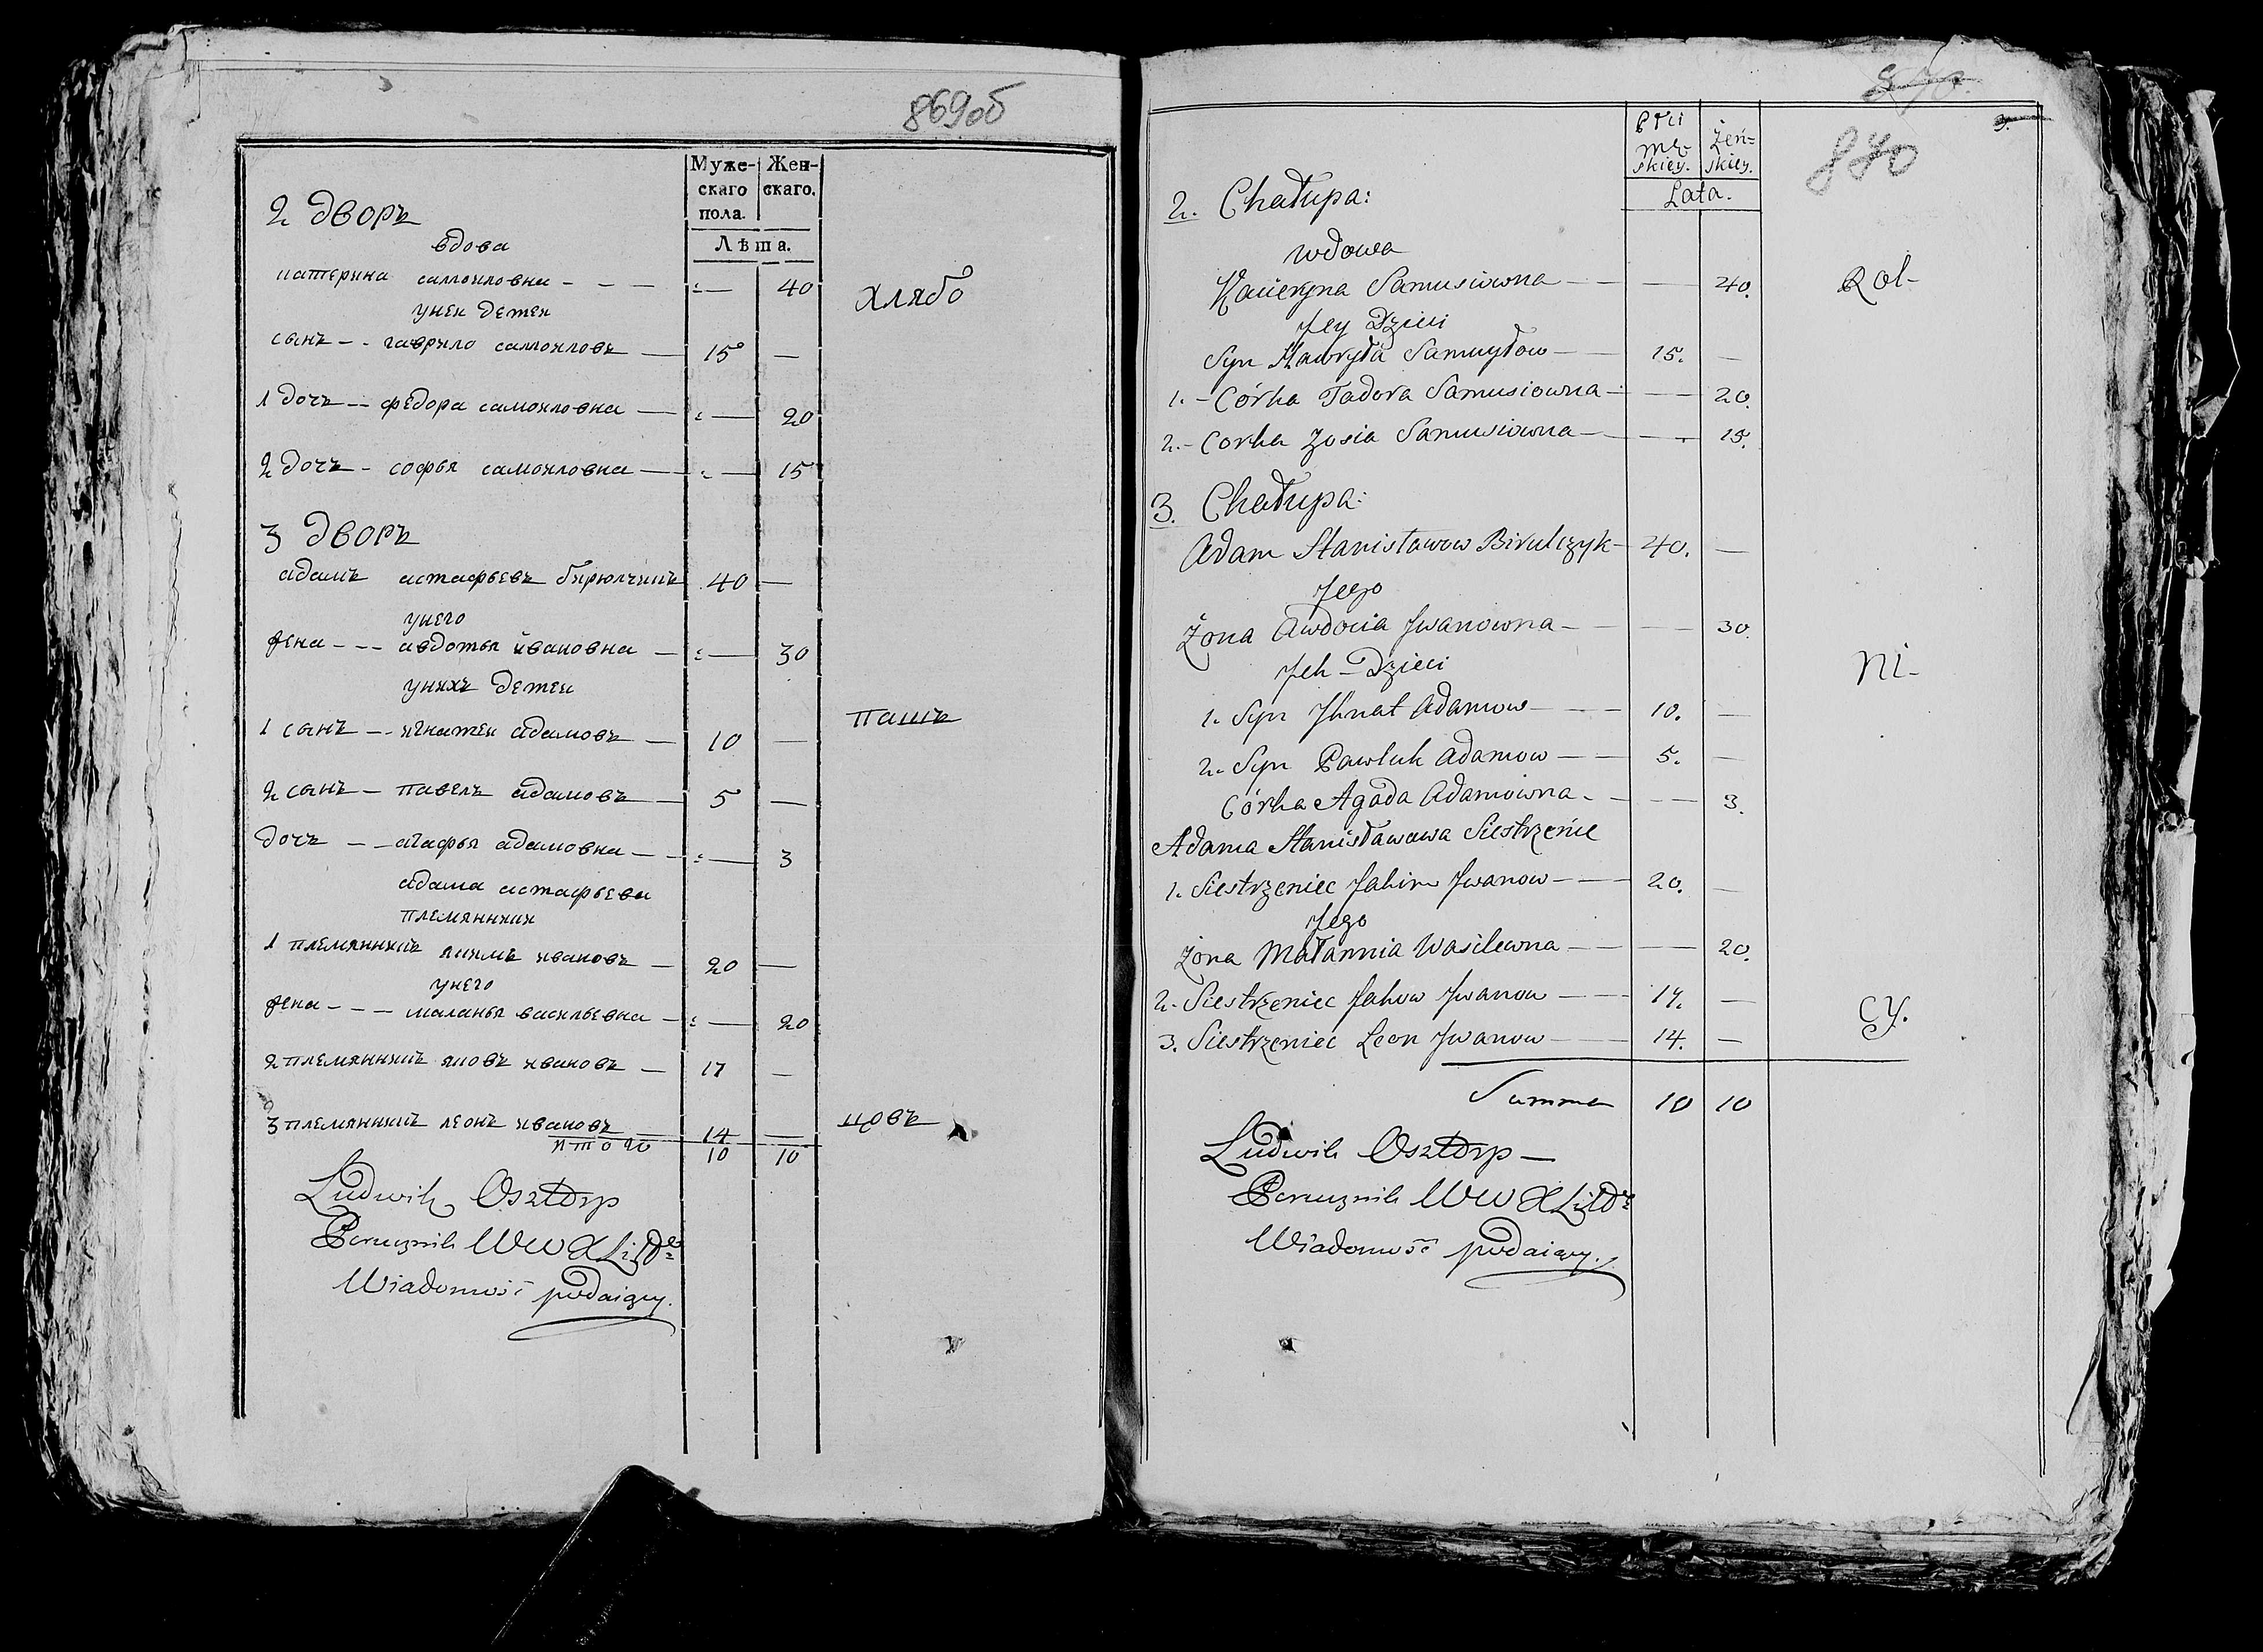 869об
Муже- Жен-
скаго скаго.
пола.
Лѣта.
2 дворъ
вдова
катерина самоиловна - - - 40
хлябо
унеи детеи
сынъ - - гаврило самоиловъ — 15 —
1 дочъ - - федора самоиловна — 20
2 дочъ - софья самоиловна — 15
3 дворъ
адамъ астафьевъ бирюлчикъ 40 —
унего
жена - - - авдотья ивановна — 30
унихъ детеи
1 сынъ - - игнатеи адамовъ — 10 —
пашъ
2 сынъ - павелъ адамовъ — 5 —
дочъ - - агафья адамовна - - 3
адама астафьева
племянники
1 племянникъ якимъ ивановъ — 20 —
унего
жена - - - маланья васильевна — 20
2 племянникъ яковъ ивановъ — 17 —
3 племянникъ леонъ ивановъ — 14 —
цовъ
итого 10 10
Ludwik Osztorp
Porucznik WWXLitt
Wiadomość podaiący.
870.
3.
870
Płci
mę- żeń-
skiey. skiey.
Lata.
2. Chałupa:
wdowa
Kacieryna Samusiowna — — 40.
Rol-
Jey Dzieci
Syn Hawryła Samuyłow — 15. —
1. - Córka Tadora Samusiowna — — 20.
2. - Corka Zosia Samusiowna — — 15.
3. Chałupa:
Adam Stanisławow Birulczyk — 40. —
Jego
Żona Awdocia Jwanowna — — 30.
Jch - Dzieci
ni-
1. Syn Jhnat Adamow — 10. —
2. Syn Pawluk Adamow — 5. —
Córka Agada Adamowna - — 3.
Adama Stanisławawa Siestrzeńie
1. Siestrzeniec Jakim Jwanow — 20. —
Jego
Żona Małannia Wasilewna — — 20.
2. Siestrzeniec Jakow Jwanow — 17. —
cy.
3. Siestrzeniec Leon Jwanow — 14. —
Summa 10 10
Ludwik Osztorp —
Porucznik WWXLitt
Wiadomość podaiący.